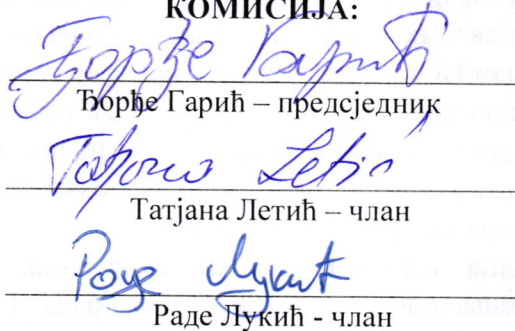 КОМИСИЈА:
Ђорђе Гарић
Ђорђе Гарић – предсједник
Татјана Летић – члан
Раде Лукић
Раде Лукић - члан